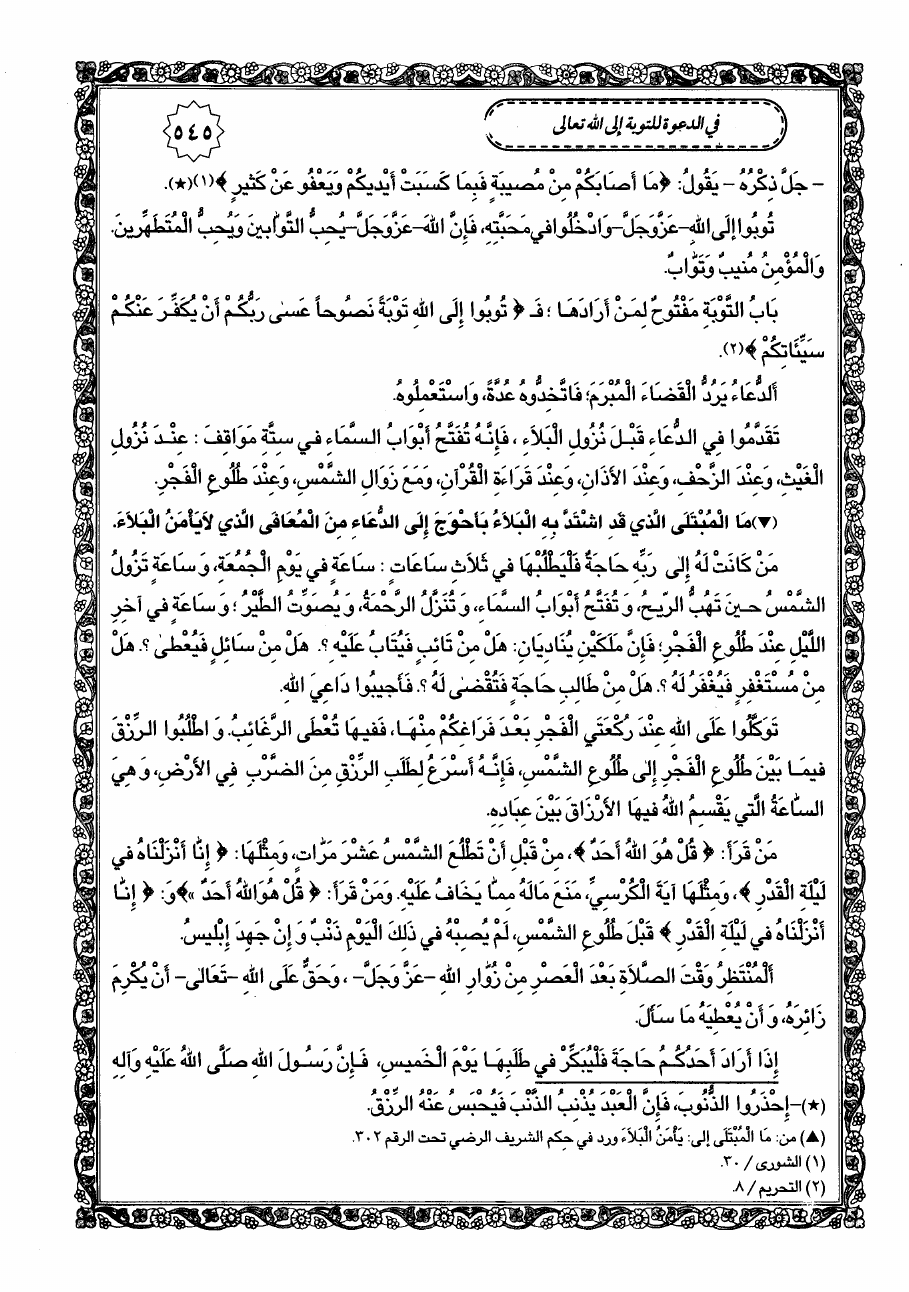 في الدعوة للتوبة إلى الله تعالى
٥٤٥
- جَلَّ ذِكْرُهُ - يَقُولُ: ﴿مَا أَصَابَكُمْ مِنْ مُصيبَةٍ فَبِمَا كَسَبَتْ أَيْديكُمْ وَيَعْفُو عَنْ كَثيرٍ ﴾(١)(★).
تُوبُوا إِلَى اللهِ-عَزَّ وَجَلَّ-وَادْخُلُوا في مَحَبَّتِهِ، فَإِنَّ اللهَ-عَزَّ وَجَلَّ-يُحِبُّ التَّوَّابينَ وَيُحِبُّ الْمُتَطَهِّرينَ.
وَالْمُؤْمِنُ مُنيبٌ وَتَوَّابٌ.
بَابُ التَّوْبَةِ مَفْتُوحٌ لِمَنْ أَرَادَهَا ؛ فَـ ﴿ تُوبُوا إِلَى اللهِ تَوْبَةً نَصُوحاً عَسىٰ رَبُّكُمْ أَنْ يُكَفِّرَ عَنْكُمْ
سَيِّئَاتِكُمْ ﴾(٢).
أَلدُّعَاءُ يَرُدُّ الْقَضَاءَ الْمُبْرَمَ؛ فَاتَّخِذُوهُ عُدَّةً، وَاسْتَعْمِلُوهُ.
تَقَدَّمُوا فِي الدُّعَاءِ قَبْلَ نُزُولِ الْبَلاَءِ ، فَإِنَّهُ تُفَتَّحُ أَبْوَابُ السَّمَاءِ في سِتَّةِ مَوَاقِفَ : عِنْدَ نُزُولِ
الْغَيْثِ، وَعِنْدَ الزَّحْفِ، وَعِنْدَ الأَذَانِ، وَعِنْدَ قَرَاءَةِ الْقُرْآنِ، وَمَعَ زَوَالِ الشَّمْسِ، وَعِنْدَ طُلُوعِ الْفَجْرِ.
(▼)مَا الْمُبْتَلَى الَّذي قَدِ اشْتَدَّ بِهِ الْبَلاَءُ بِأَحْوَجَ إِلَى الدُّعَاءِ مِنَ الْمُعَافَى الَّذي لاَيَأْمَنُ الْبَلاَءَ.
مَنْ كَانَتْ لَهُ إِلى رَبِّهِ حَاجَةٌ فَلْيَطْلُبْهَا في ثَلاَثِ سَاعَاتٍ : سَاعَةٍ في يَوْمِ الْجُمُعَةِ، وَ سَاعَةٍ تَزُولُ
الشَّمْسُ حينَ تَهُبُّ الرّيحُ، وَ تُفَتَّحُ أَبْوَابُ السَّمَاءِ، وَ تُنَزَّلُ الرَّحْمَةُ، وَ يُصَوِّتُ الطَّيْرُ ؛ وَ سَاعَةٍ في آخِرِ
اللَّيْلِ عِنْدَ طُلُوعِ الْفَجْرِ؛ فَإِنَّ مَلَكَيْنِ يُنَادِيَانِ: هَلْ مِنْ تَائِبٍ فَيُتَابُ عَلَيْهِ ؟. هَلْ مِنْ سَائِلٍ فَيُعْطىٰ ؟. هَلْ
مِنْ مُسْتَغْفِرٍ فَيُغْفَرُ لَهُ ؟. هَلْ مِنْ طَالِبِ حَاجَةٍ فَتُقْضىٰ لَهُ ؟. فَأَجيبُوا دَاعِيَ اللهِ.
تَوَكَّلُوا عَلَى اللهِ عِنْدَ رَكْعَتَيِ الْفَجْرِ بَعْدَ فَرَاغِكُمْ مِنْهَا، فَفيهَا تُعْطَى الرَّغَائِبُ. وَ اطْلُبُوا الرِّزْقَ
فيمَا بَيْنَ طُلُوعِ الْفَجْرِ إِلى طُلُوعِ الشَّمْسِ، فَإِنَّهُ أَسْرَعُ لِطَلَبِ الرِّزْقِ مِنَ الضَّرْبِ فِي الأَرْضِ، وَ هِيَ
السَّاعَةُ الَّتي يَقْسِمُ اللهُ فيهَا الأَرْزَاقَ بَيْنَ عِبَادِهِ.
مَنْ قَرَأَ: ﴿ قُلْ هُوَ اللهُ أَحَدٌ ﴾، مِنْ قَبْلِ أَنْ تَطْلُعَ الشَّمْسُ عَشْرَ مَرَّاتٍ، وَمِثْلَهَا: ﴿ إِنَّا أَنْزَلْنَاهُ في
لَيْلَةِ الْقَدْرِ ﴾، وَمِثْلَهَا آيَةَ الْكُرْسِيِّ، مَنَعَ مَالَهُ مِمَّا يَخَافُ عَلَيْهِ. وَمَنْ قَرَأَ: ﴿ قُلْ هُوَ اللهُ أَحَدٌ »﴾وَ: ﴿ إِنَّا
أَنْزَلْنَاهُ في لَيْلَةِ الْقَدْرِ ﴾ قَبْلَ طُلُوعِ الشَّمْسِ، لَمْ يُصِبْهُ في ذَلِكَ الْيَوْمِ ذَنْبٌ وَ إِنْ جَهِدَ إِبْليسُ.
أَلْمُنْتَظِرُ وَقْتَ الصَّلاَةِ بَعْدَ الْعَصْرِ مِنْ زُوَّارِ اللهِ -عَزَّ وَجَلَّ- ، وَحَقٌّ عَلَى اللهِ -تَعَالى- أَنْ يُكْرِمَ
زَائِرَهُ، وَ أَنْ يُعْطِيَهُ مَا سَأَلَ.
إِذَا أَرَادَ أَحَدُكُمْ حَاجَةً فَلْيُبَكِّرْ في طَلَبِهَا يَوْمَ الْخَميسِ، فَإِنَّ رَسُولَ اللهِ صَلَّى اللهُ عَلَيْهِ وَآلِهِ
(★)-إِحْذَرُوا الذُّنُوبَ، فَإِنَّ الْعَبْدَ يُذْنِبُ الذَّنْبَ فَيُحْبَسُ عَنْهُ الرِّزْقُ.
(▲) من: مَا الْمُبْتَلَى إلى: يَأْمَنُ الْبَلاَءَ ورد في حكم الشريف الرضي تحت الرقم ٣٠٢.
(١) الشورى / ٣٠.
(٢) التحريم / ٨.